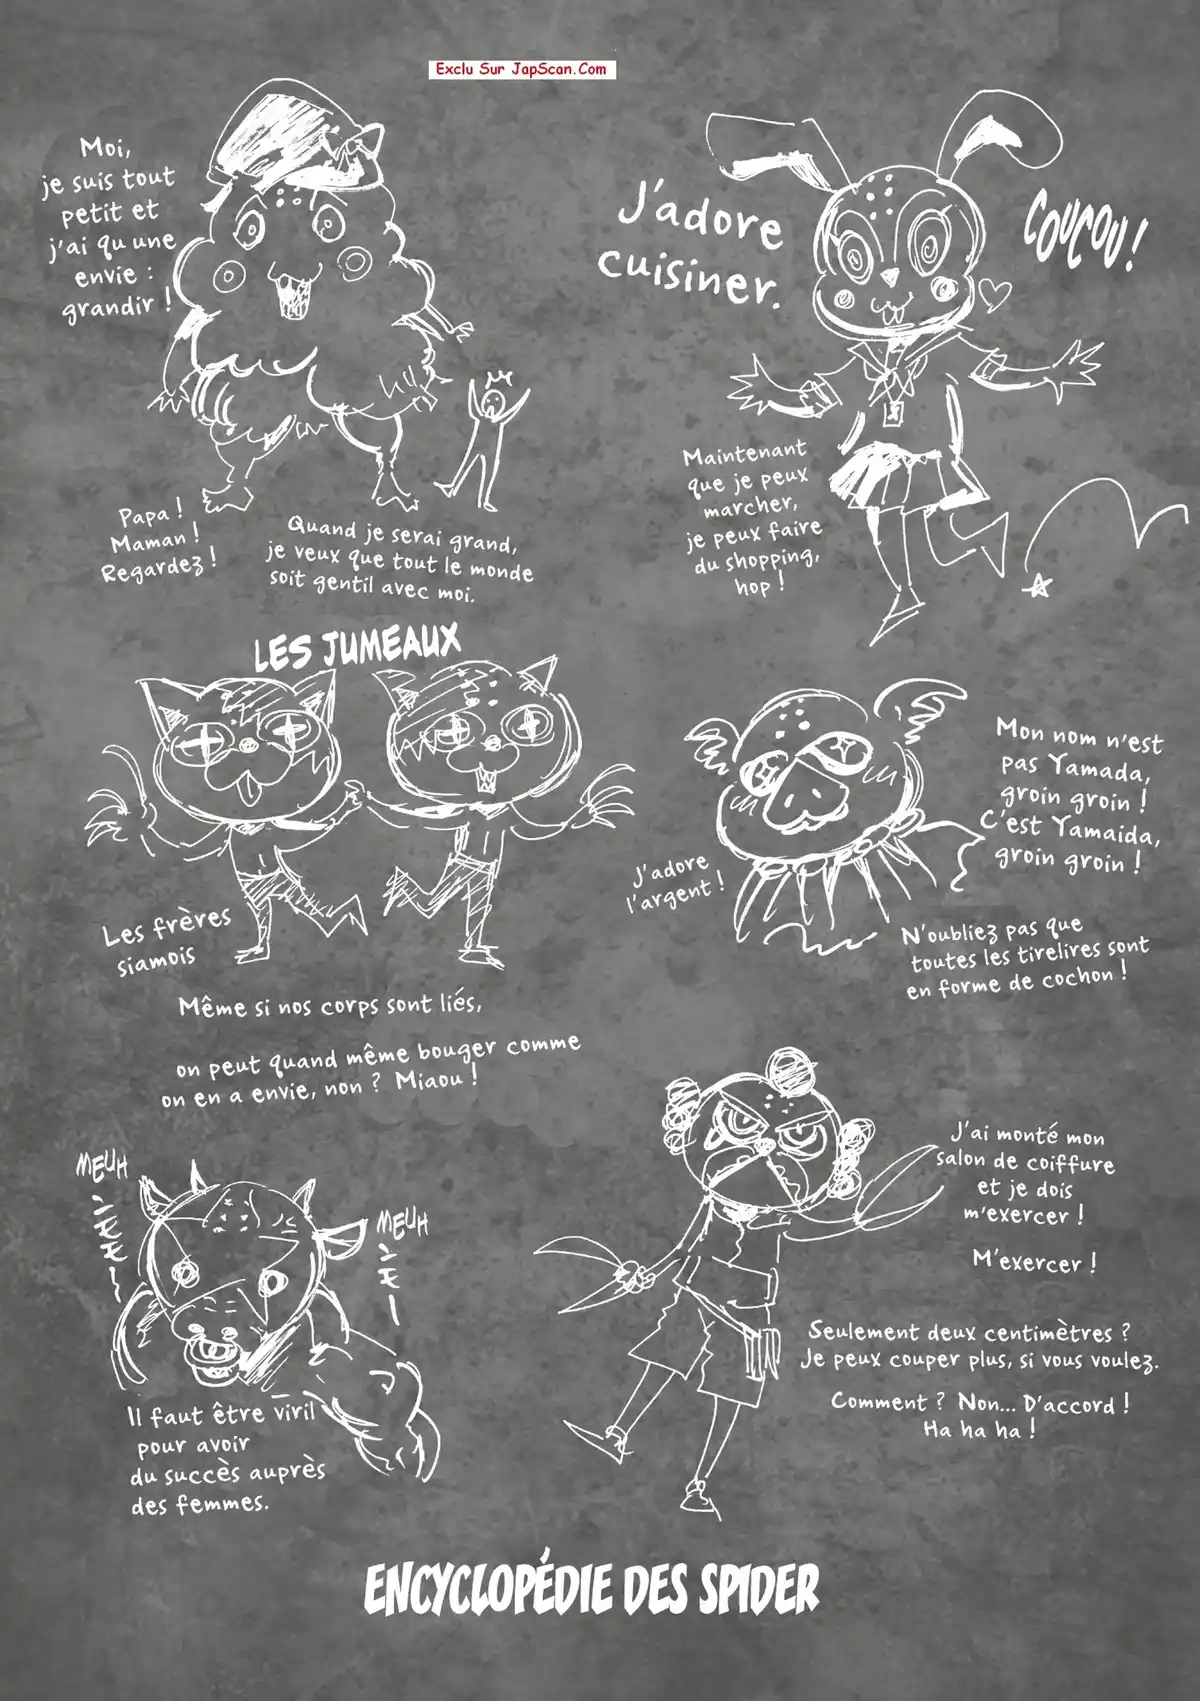 Exclu Sur JapScan.Com
Moi,
je suis tout
petit et
j'ai qu'une
envie :
grandir !
Papa !
Maman !
Regardez !
Quand je serai grand,
je veux que tout le monde
soit gentil avec moi.
J'adore
cuisiner.
COUCOU !
Maintenant
que je peux
marcher,
je peux faire
du shopping,
hop !
LES JUMEAUX
Les frères
siamois
Même si nos corps sont liés,
on peut quand même bouger comme
on en a envie, non ? Miaou !
Mon nom n'est
pas Yamada,
groin groin !
C'est Yamaida,
groin groin !
J'adore
l'argent !
N'oubliez pas que
toutes les tirelires sont
en forme de cochon !
MEUH
ンモモー
MEUH
ンモー
Il faut être viril
pour avoir
du succès auprès
des femmes.
J'ai monté mon
salon de coiffure
et je dois
m'exercer !
M'exercer !
Seulement deux centimètres ?
Je peux couper plus, si vous voulez.
Comment ? Non... D'accord !
Ha ha ha !
ENCYCLOPÉDIE DES SPIDER